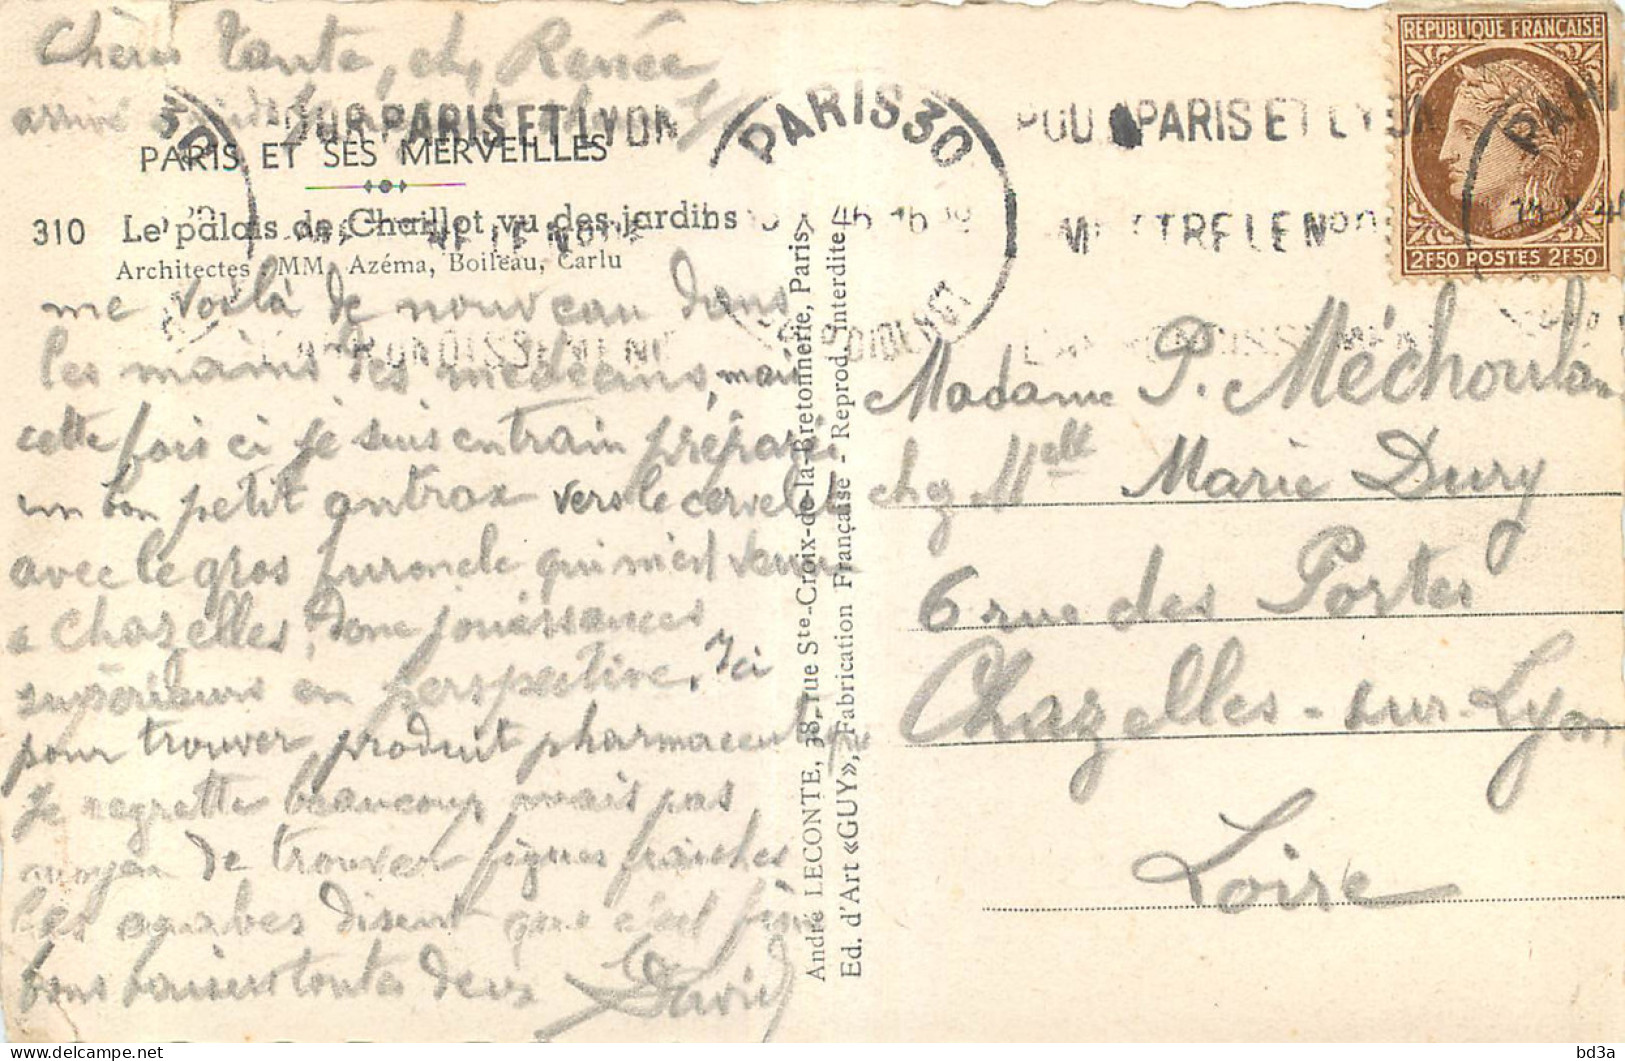 Chère Tante, chè Renée
arrivé
POUR PARIS ET LYON
PARIS 30
POUR PARIS ET LYON
PARIS
RÉPUBLIQUE FRANÇAISE
2F50 POSTES 2F50
PARIS ET SES MERVEILLES
310 Le palais de Chaillot vu des jardins
Architectes : MM. Azéma, Boileau, Carlu
METTRE LE N°
me voilà de nouveau dans
les mains des médecins, mais
cette fois ci je suis entrain préparer
un bon petit antrax vers le cervelet
avec le gros furoncle qui m'est venu
a Chazelles, donc jouissances
supérieurs en perspective. Ici
pour trouver produit pharmaceutique
Je regrette beaucoup mais pas
moyen de trouver figues fraiches
les arabes disent que c'est fini
bons baisers toutes deux David
André LECONTE, 38, rue Ste-Croix-de-la-Bretonnerie, Paris
Ed. d'Art «GUY», Fabrication Française - Reprod. interdite
Madame P. Méchoulan
chez Melle Marie Dury
6 rue des Portes
Chazelles-sur-Lyon
Loire
bd3a